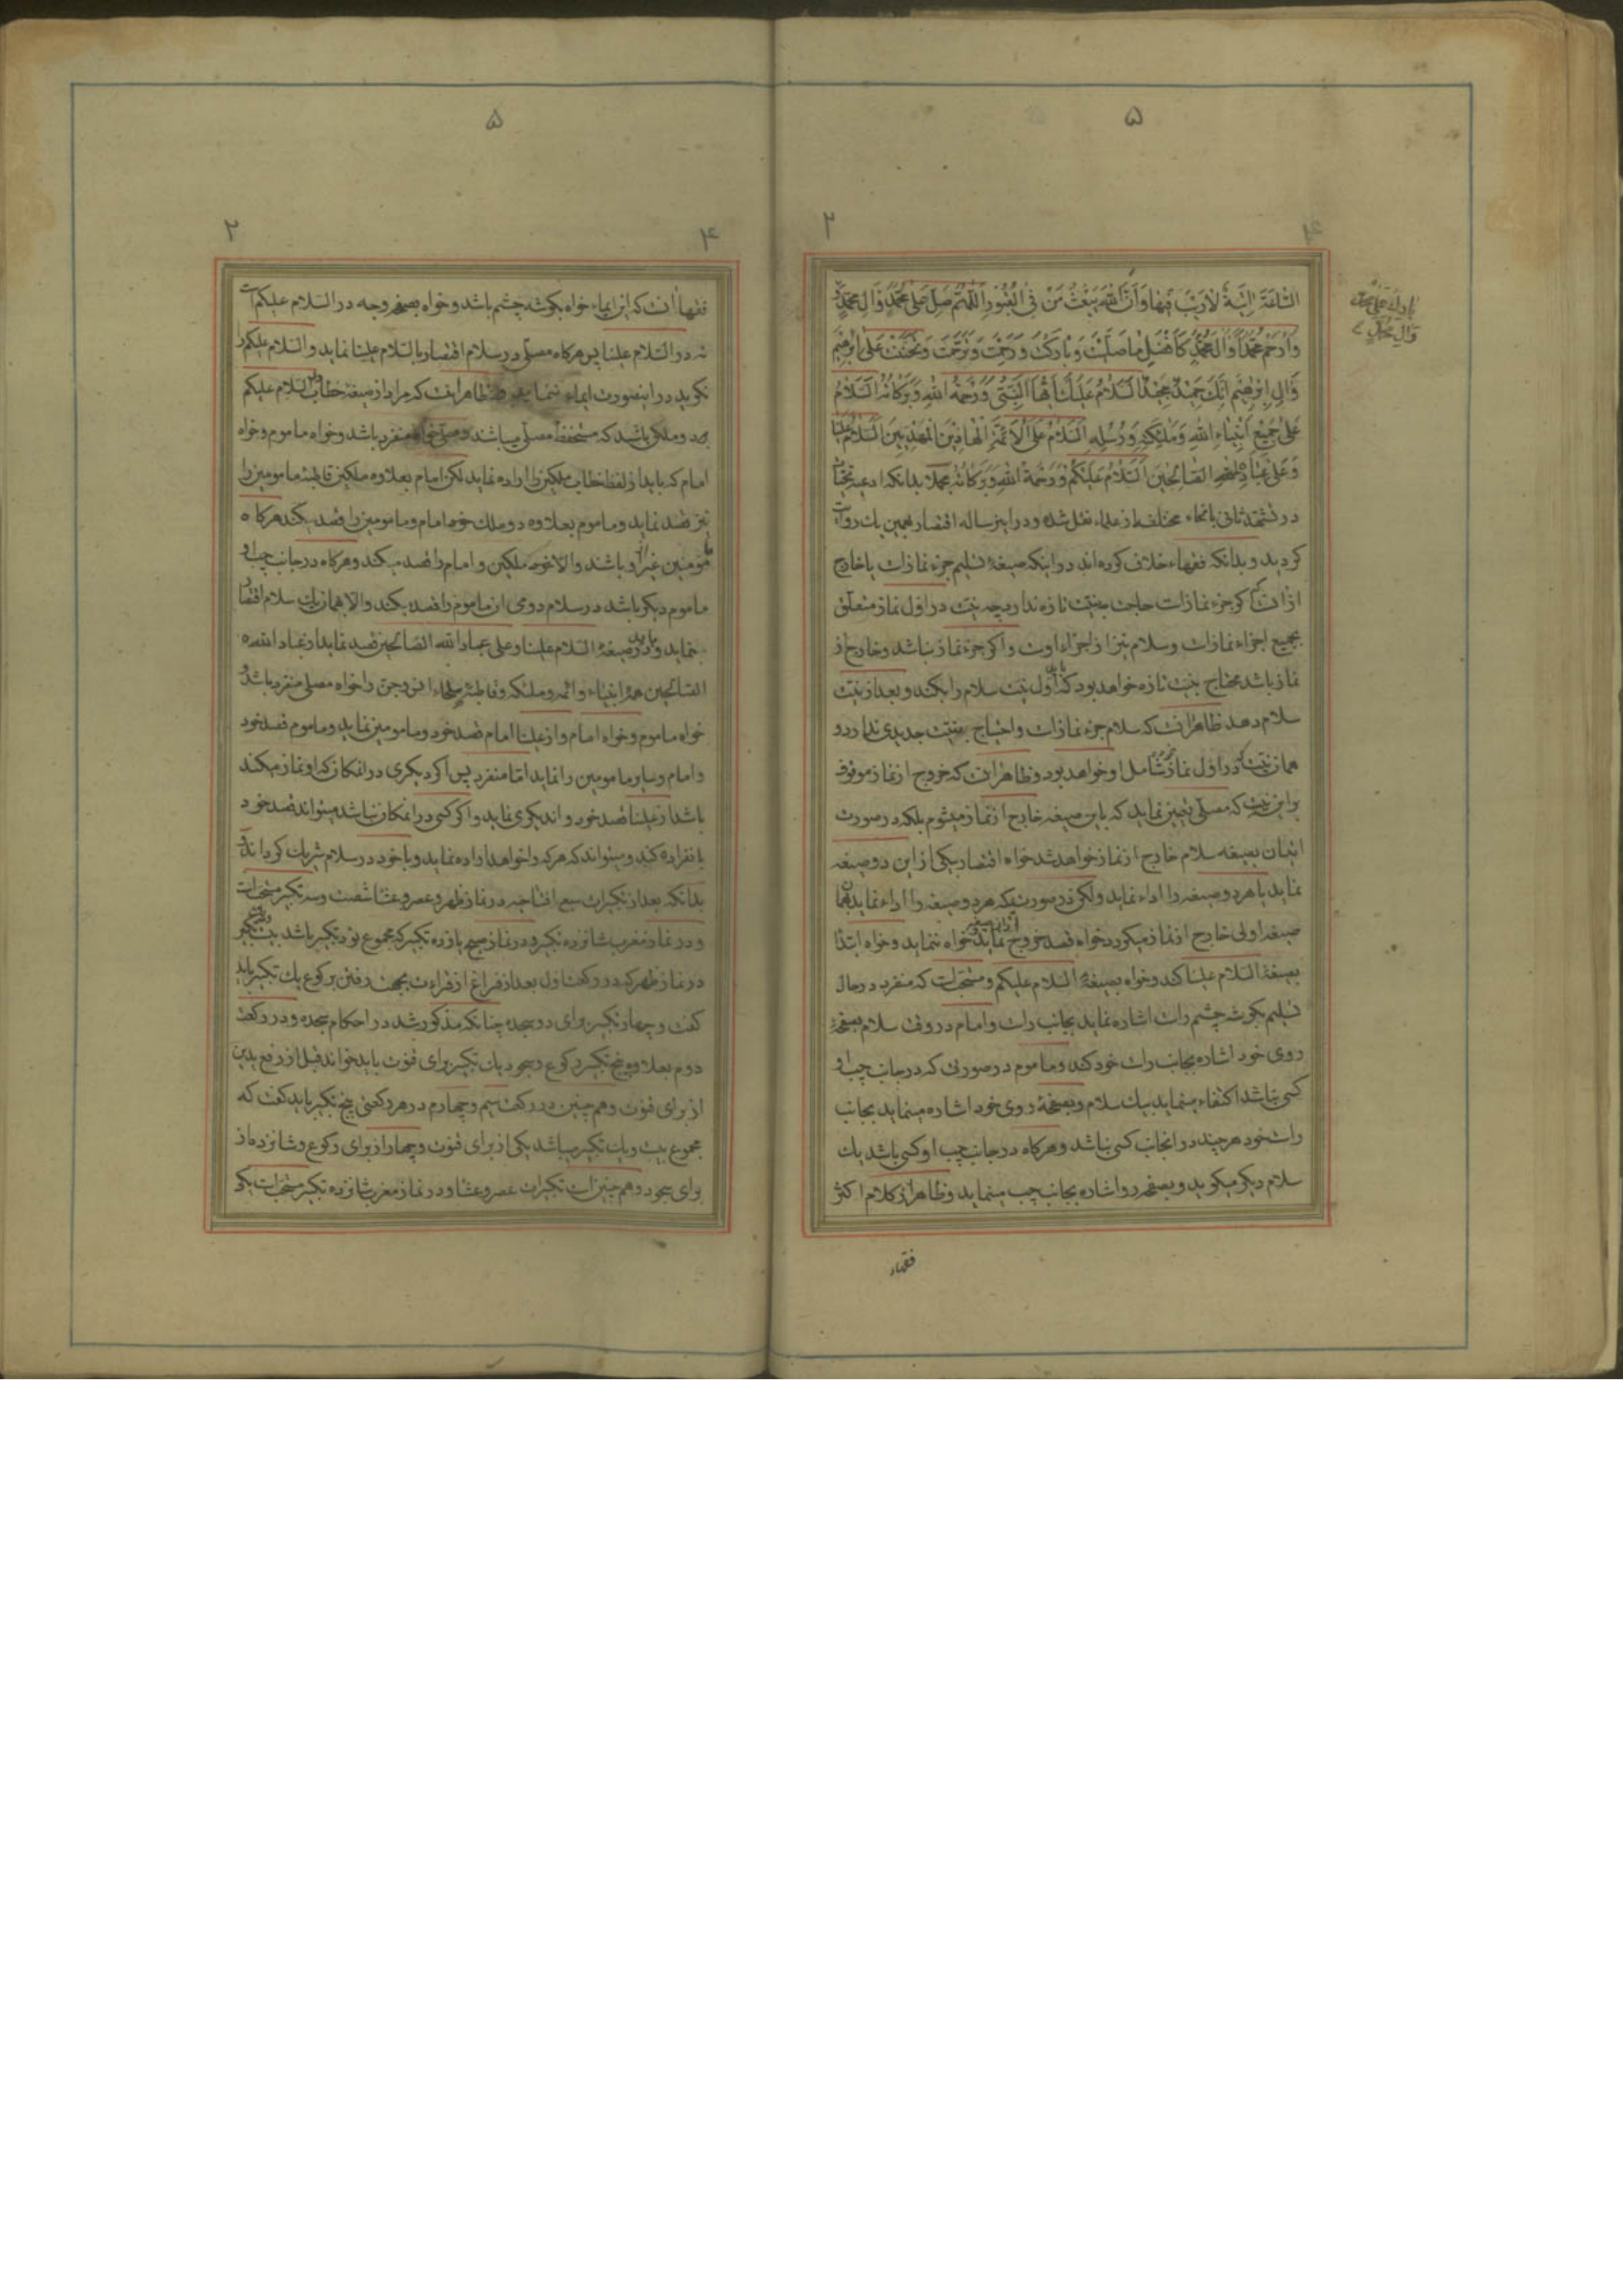 ۵
۲
۴
السَّاعَةَ اٰتِيَةٌ لَا رَيْبَ فِيهَا وَاَنَّ اللّٰهَ يَبْعَثُ مَنْ فِي الْقُبُورِ اَللّٰهُمَّ صَلِّ عَلٰى مُحَمَّدٍ وَاٰلِ مُحَمَّدٍ
بارك على محمد
وال محمد
وَارْحَمْ مُحَمَّداً وَاٰلَ مُحَمَّدٍ كَاَفْضَلِ مَا صَلَّيْتَ وَبَارَكْتَ وَرَحِمْتَ وَتَرَحَّمْتَ وَتَحَنَّنْتَ عَلٰى اِبْرٰهِيمَ
وَاٰلِ اِبْرٰهِيمَ اِنَّكَ حَمِيدٌ مَجِيدٌ اَلسَّلَامُ عَلَيْكَ اَيُّهَا النَّبِيُّ وَرَحْمَةُ اللّٰهِ وَبَرَكَاتُهُ اَلسَّلَامُ
عَلٰى جَمِيعِ اَنْبِيَاءِ اللّٰهِ وَمَلٰئِكَتِهِ وَرُسُلِهِ اَلسَّلَامُ عَلَى الْاَئِمَّةِ الْهَادِينَ الْمَهْدِيِّينَ اَلسَّلَامُ عَلَيْنَا
وَعَلٰى عِبَادِ اللّٰهِ الصَّالِحِينَ اَلسَّلَامُ عَلَيْكُمْ وَرَحْمَةُ اللّٰهِ وَبَرَكَاتُهُ بدانكه ادعيه
در تشهد ثانى بانحاء مختلفه از علماء نقل شده و در اين رساله اقتصار بهمين يك روايت
كرديد و بدانكه فقهاء خلاف كرده اند در اينكه صيغهٔ تسليم جزء نمازات يا خارج
از ان اكر جزء نمازات حاجت بنيت تازه ندارد چه نيت در اول نماز متعلق
بجميع اجزاء نمازات و سلام نيز از اجزاء اوست و اكر جزء نماز نباشد و خارج از
نماز باشد محتاج بنيت تازه خواهد بود كه اول نيت سلام را بكند و بعد از نيت
سلام دهد ظاهر انست كه سلام جزء نمازات و احتياج بنيت جديدى ندارد و
همان نيت در اول نماز شامل او خواهد بود و ظاهر انست كه خروج از نماز موقوف
بر اين نيست كه مصلى تعيين نمايد كه باين صيغه خارج از نماز ميشوم بلكه در صورت
اتيان بصيغه سلام خارج از نماز خواهد شد خواه اقتصار بيكى از اين دو صيغه
نمايد يا هر دو صيغه را اداء نمايد ولكن در صورتيكه هر دو صيغه را اداء نمايد بهمان
صيغه اولى خارج از نماز ميكردد خواه قصد خروج نمايد خواه ننمايد و خواه ابتدا
بصيغهٔ السلام علينا كند و خواه بصيغهٔ السلام عليكم و مستحب است كه منفرد در حال
تسليم بكوشه چشم راست اشاره نمايد بجانب راست و امام در وقت سلام بصفحهٔ
روى خود اشاره بجانب راست خود كند و ماموم در صورتى كه در جانب چپ او
كسى نباشد اكتفاء مينمايد بيك سلام و بصفحهٔ روى خود اشاره مينمايد بجانب
راست خود هر چند در انجانب كسى نباشد و هركاه در جانب چپ او كسى باشد يك
سلام ديكر ميكويد و بصفحه رو اشاره بجانب چپ مينمايد و ظاهر از كلام اكثر
فقهاء
۵
۲
۴
فقها انست كه اين ايماء خواه بكوشه چشم باشد و خواه بصفحه وجه در السلام عليكم است
نه در السلام علينا پس هركاه مصلى در سلام اقتصار بالسلام علينا نمايد و السلام عليكم را
نكويد در اينصورت ايماء ننمايد و ظاهر انست كه مراد از صيغهٔ خطاب السلام عليكم
دو ملكى باشند كه مستحفظ مصلى ميباشند و مصلى خواه منفرد باشد و خواه ماموم و خواه
امام كه بايد از لفظ خطاب ملكين را اراده نمايد لكن امام بعلاوه ملكين قاطبهٔ مامومين را
نيز قصد نمايد و ماموم بعلاوه دو ملك خود امام و مامومين را قصد بكند هركاه
مومنين غير او باشند و الا خود ملكين و امام را قصد ميكند و هركاه در جانب چپ او
ماموم ديكر باشد در سلام دومى ان ماموم را قصد بكند و الا همان يك سلام اقتصار
نمايد و بايد در صيغهٔ السلام علينا و على عباد الله الصالحين قصد نمايد از عباد الله
الصالحين همه انبياء و ائمه و ملئكه و قاطبهٔ صلحاء انس و جن را خواه مصلى منفرد باشد و
خواه ماموم و خواه امام و از علينا امام قصد خود و مامومين نمايد و ماموم قصد خود
و امام و ساير مامومين را نمايد اما منفرد پس اكر ديكرى در انمكان كه او نماز ميكند
باشد از علينا قصد خود و اند يكرى نمايد و اكر كسى در انمكان نباشد ميتواند قصد خود
بانفراده كند و ميتواند كه هركه را خواهد اراده نمايد و با خود در سلام شريك كرداند
بدانكه بعد از تكبيرات سبع افتتاحيه در نماز ظهر و عصر و عشا شصت و سه تكبير مستحب است
و در نماز مغرب شانزده تكبير و در نماز صبح يازده تكبير كه مجموع نود تكبير باشد
در نماز ظهر كه در ركعت اول بعد از فراغ از قراءت بجهت رفتن بركوع يك تكبير بايد
كفت و چهار تكبير براى دو سجده چنانكه مذكور شد در احكام سجده و در ركعت
دوم بعلاوه پنج تكبير ركوع و سجود يك تكبير براى قنوت بايد خواند قبل از رفع يدين
از براى قنوت و هم چنين در ركعت سيم و چهارم در هر ركعتى پنج تكبير بايد كفت كه
مجموع بيست و يك تكبير ميباشد يكى از براى قنوت و چهار از براى ركوع و شانزده از
براى سجود و هم چنين است تكبيرات عصر و عشا و در نماز مغرب شانزده تكبير مستحب است